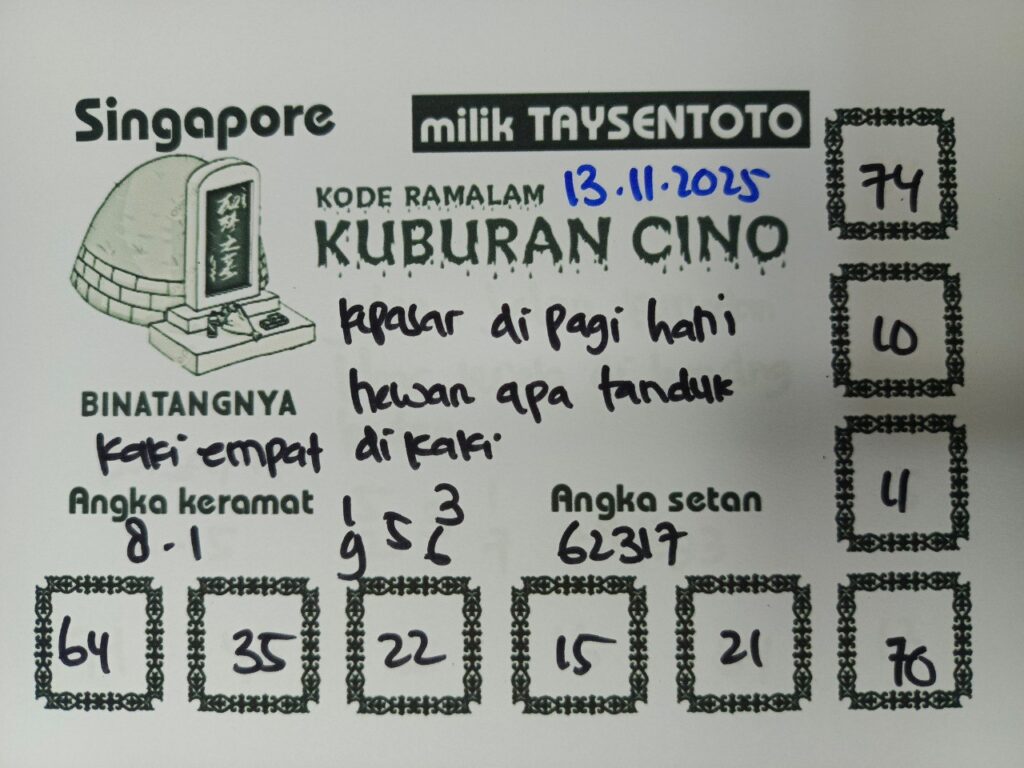 Singapore
milik TAYSENTOTO
KODE RAMALAM 13.11.2025
KUBURAN CINO
kpasar di pagi hari
BINATANGNYA hewan apa tanduk
kaki empat di kaki
Angka keramat 1 3 Angka setan
8.1 9 5 6 62317
74
10
11
64 35 22 15 21 70